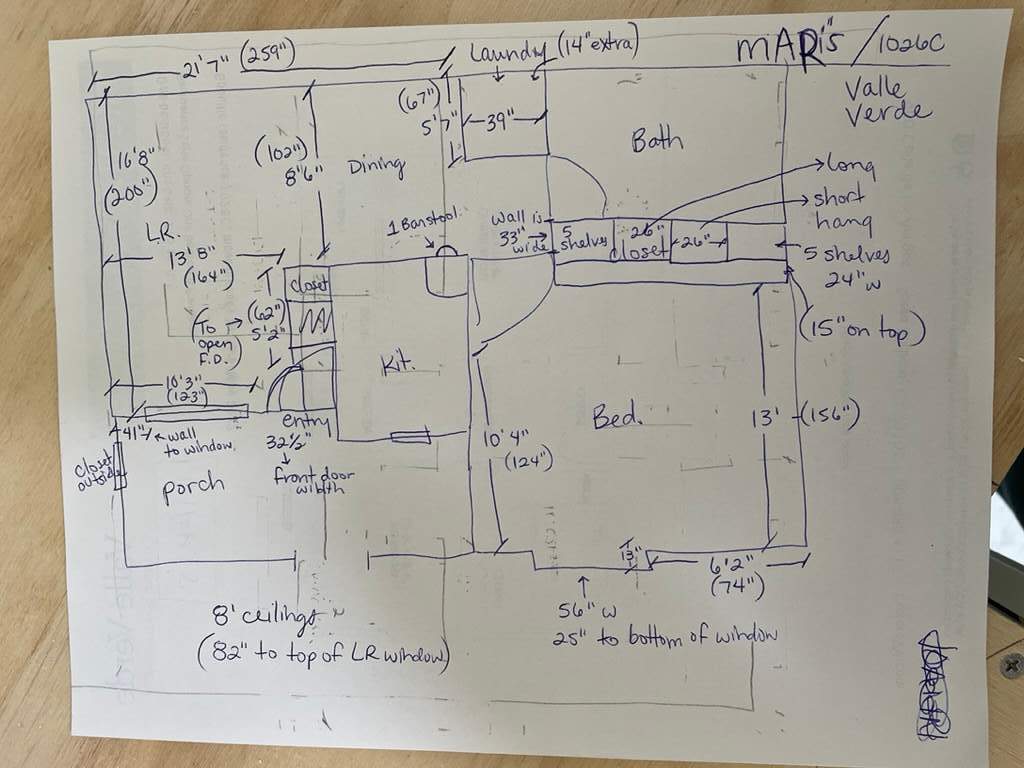 21'7" (259")
Laundry (14" extra)
MARi's / 1026C
Valle
Verde
16'8"
(200")
(102")
8'6"
Dining
(67")
5'7"
39"
Bath
long
short
hang
1 Barstool
wall is
33"
wide
5
shelves
26"
closet
26"
5 shelves
24"
w
(15" on top)
L.R.
13'8"
(164")
closet
(62")
5'2"
(To
open
F.D.)
Kit.
10'3"
(123")
entry
32½"
front door
width
41"
wall
to window
closet
outside
porch
10'4"
(124")
Bed.
13'
(156")
13"
6'2"
(74")
56" w
25" to bottom of window
8' ceilings
(82" to top of LR window)